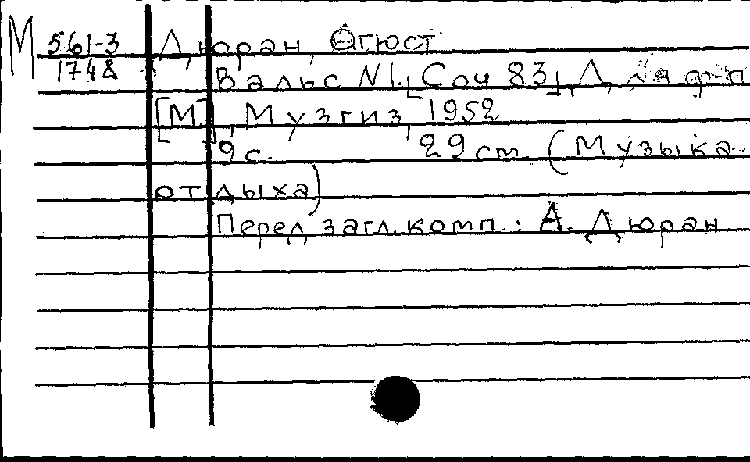 М 561-3
1748
Дюран, Огюст
Вальс N1. [Соч 83]. Для ф-п
[М], Музгиз, 1952
9 с. 29 cm. (Музыка
отдыха)
Перед загл. комп.: А. Дюран